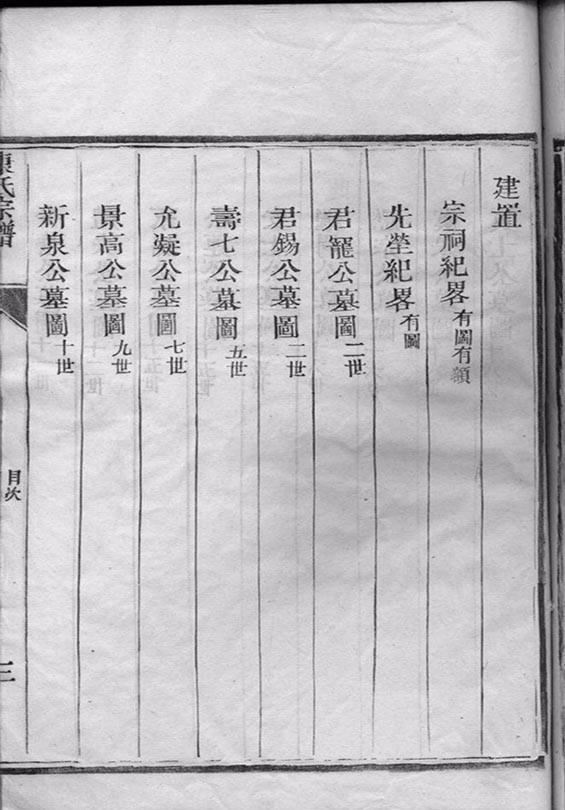 建置
宗祠紀畧有圖有額
先塋紀畧有圖
君寵公墓圖二世
君錫公墓圖二世
壽七公墓圖五世
允凝公墓圖七世
景高公墓圖九世
新泉公墓圖十世
康氏宗譜
目次
三